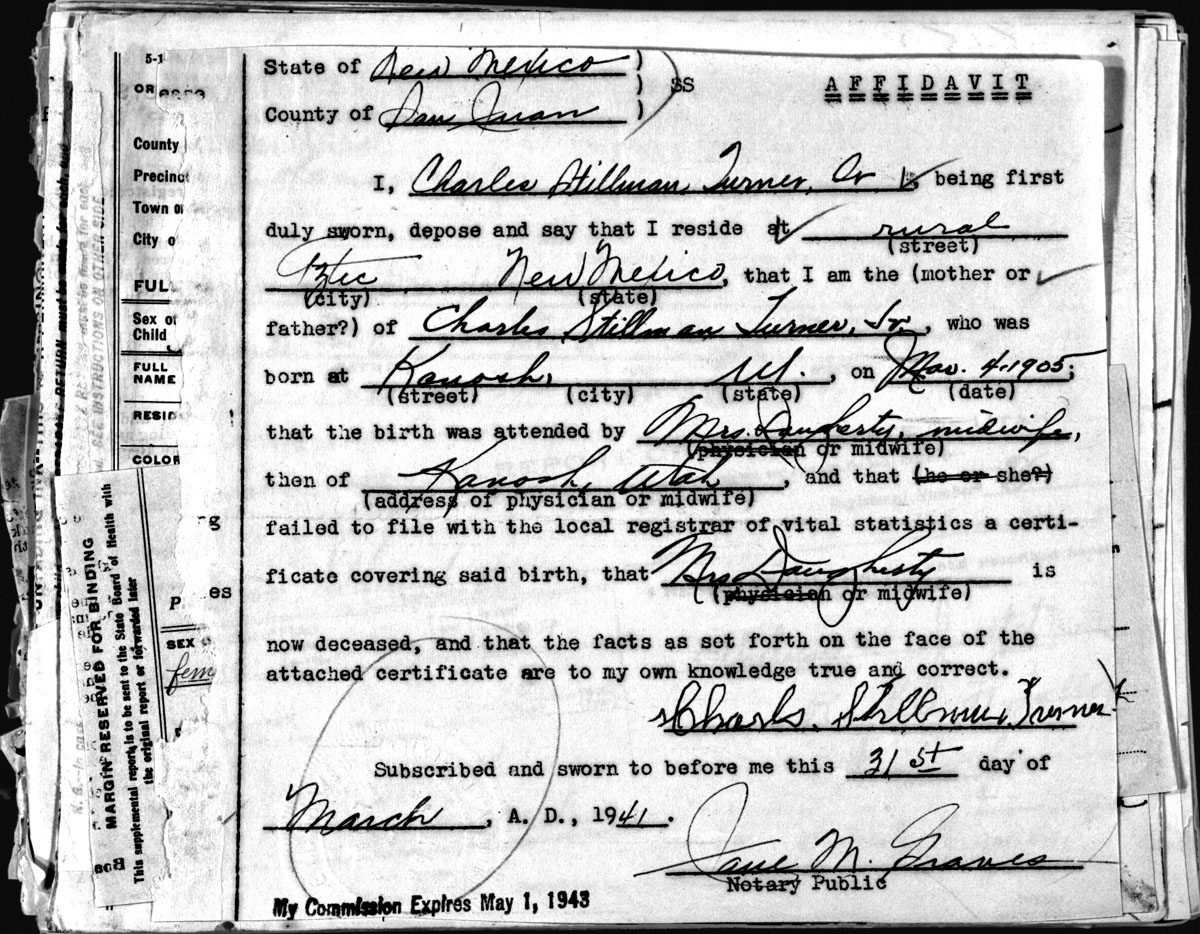 State of New Mexico )
) SS
AFFIDAVIT
County of San Juan )
I, Charles Stillman Turner, Sr, being first
duly sworn, depose and say that I reside at rural
(street)
Aztec New Mexico, that I am the (mother or
(city) (state)
father?) of Charles Stillman Turner, Jr., who was
born at Kanosh, Ut., on Mar. 4-1905;
(street) (city) (state) (date)
that the birth was attended by Mrs. Daugherty, midwife,
(physician or midwife)
then of Kanosh, Utah, and that (he or she?)
(address of physician or midwife)
failed to file with the local registrar of vital statistics a certi-
ficate covering said birth, that Mrs Daugherty is
(physician or midwife)
now deceased, and that the facts as set forth on the face of the
attached certificate are to my own knowledge true and correct.
Charles Stillman Turner
Subscribed and sworn to before me this 31st day of
March, A. D., 1941.
Jane M. Graves
Notary Public
My Commission Expires May 1, 1943
5-1
OR
County
Precinct
Town of
City o
FULL
Sex of
Child
FULL
NAME
RESID
COLOR
P.
es
SEX
fem
MARGIN RESERVED FOR BINDING
This supplemental report is to be sent to the State Board of Health with
the original report or forwarded later
SEE INSTRUCTIONS ON OTHER SIDE